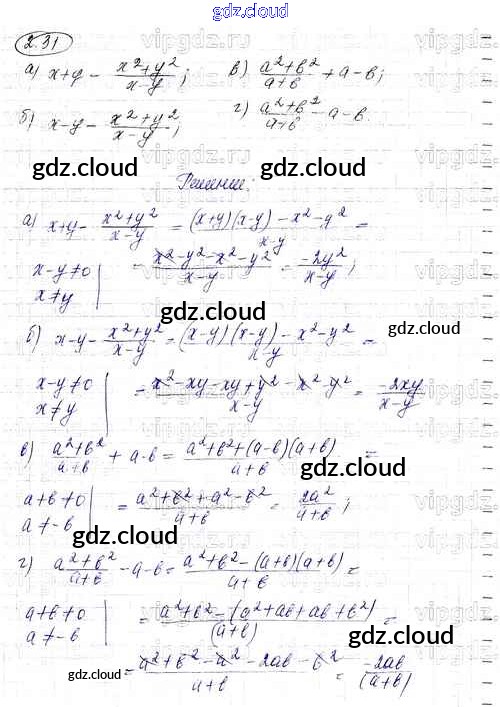 gdz.cloud
2.31
а) x+y - (x²+y²)/(x-y);   в) (a²+b²)/(a+b) + a-b;
б) x-y - (x²+y²)/(x-y);   г) (a²+b²)/(a+b) - a-b.
gdz.cloud gdz.cloud
Решение:
а) x+y - (x²+y²)/(x-y) = ((x+y)(x-y) - x² - y²)/(x-y) =
x-y≠0 | = (x² - y² - x² - y²)/(x-y) = -2y²/(x-y);
x≠y
gdz.cloud gdz.cloud
б) x-y - (x²+y²)/(x-y) = ((x-y)(x-y) - x² - y²)/(x-y) =
x-y≠0 | = (x² - xy - xy + y² - x² - y²)/(x-y) = -2xy/(x-y)
x≠y
gdz.cloud
в) (a²+b²)/(a+b) + a-b = (a²+b²+(a-b)(a+b))/(a+b) =
gdz.cloud
a+b≠0 | = (a²+b²+a²-b²)/(a+b) = 2a²/(a+b);
a≠-b
gdz.cloud
г) (a²+b²)/(a+b) - a-b = (a²+b² - (a+b)(a+b))/(a+b) =
a+b≠0 | = (a²+b² - (a²+ab+ab+b²))/(a+b) =
a≠-b
gdz.cloud
= (a²+b²-a²-2ab-b²)/(a+b) = -2ab/(a+b)
gdz.cloud gdz.cloud